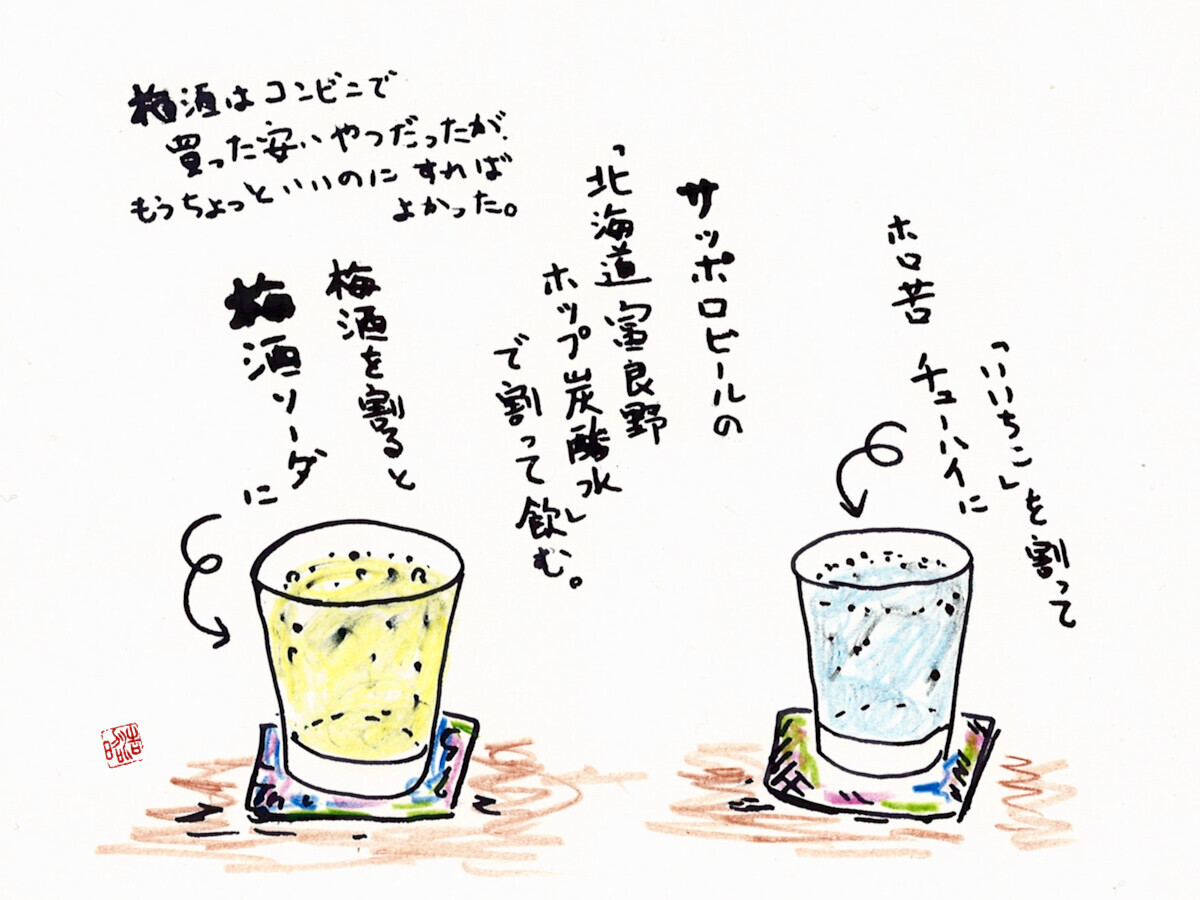 サッポロビールの
「北海道富良野
ホップ炭酸水」
で割って飲む。
「いいちこ」を割って
ホロ苦 チューハイに
梅酒を割ると
梅酒ソーダに
梅酒はコンビニで
買った安いやつだったが、
もうちょっといいのにすれば
よかった。